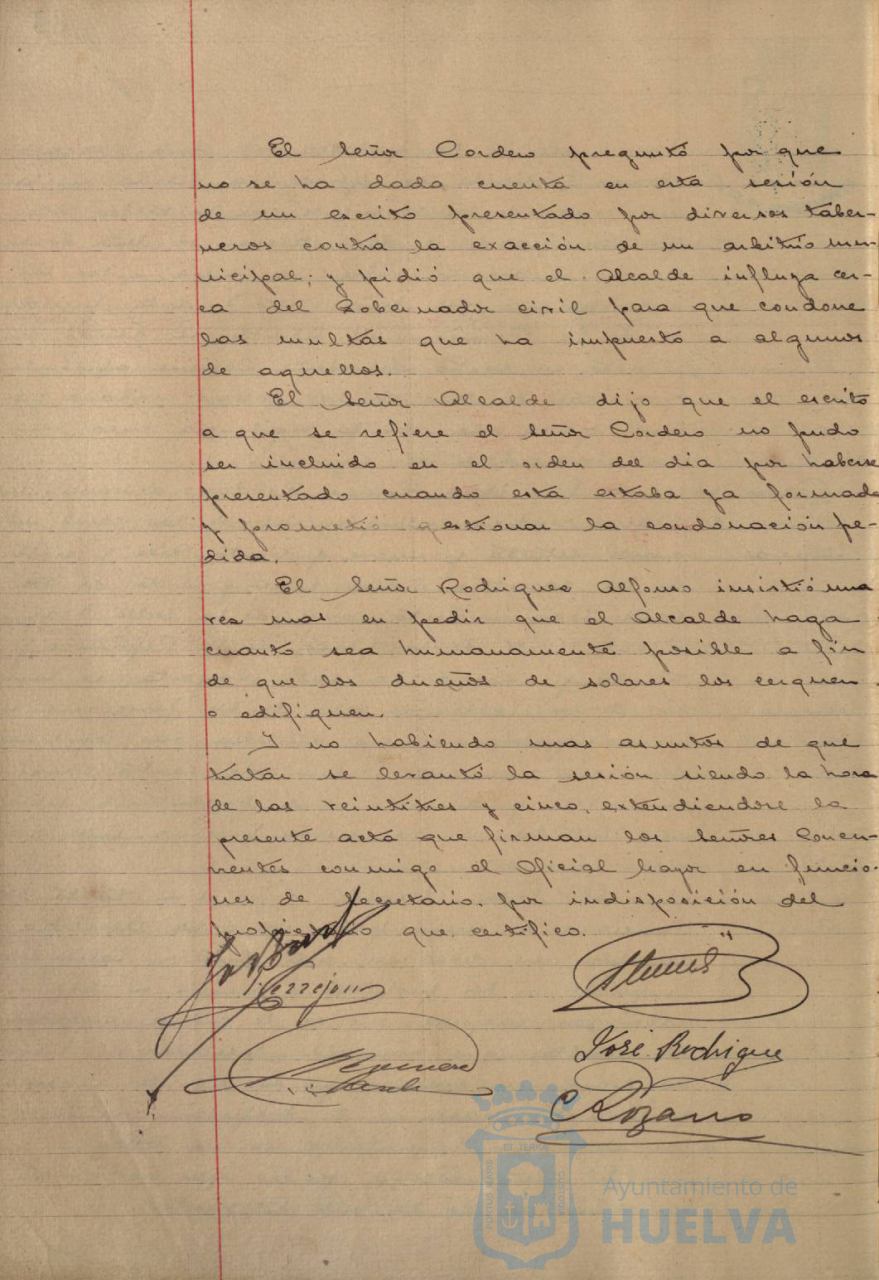 El Señor Cordero preguntó por que
no se ha dado cuenta en esta sesión
de un escrito presentado por diversos taber-
neros contra la exacción de un arbitrio mu-
nicipal; y pidió que el Alcalde influya cer-
ca del Gobernador civil para que condone
las multas que ha impuesto a algunos
de aquellos.
El Señor Alcalde dijo que el escrito
a que se refiere el Señor Cordero no pudo
ser incluido en el orden del dia por haberse
presentado cuando esta estaba ya formada
y prometió gestionar la condonación pe-
dida.
El Señor Rodriguez Alfonso insistió una
vez mas en pedir que el Alcalde haga
cuanto sea humanamente posible a fin
de que los dueños de solares los cerquen
o edifiquen.
Y no habiendo mas asuntos de que
tratar se levantó la sesión siendo la hora
de las veintitres y cinco, extendiendose la
presente acta que firman los Señores Concu-
rrentes conmigo el Oficial Mayor en funcio-
nes de Secretario, por indisposición del
propietario que certifico.
Terrejon
José Rodrigue
Lozano
PORTUS MARIS
ET TERRAE
CUSTODIA
Ayuntamiento de
HUELVA